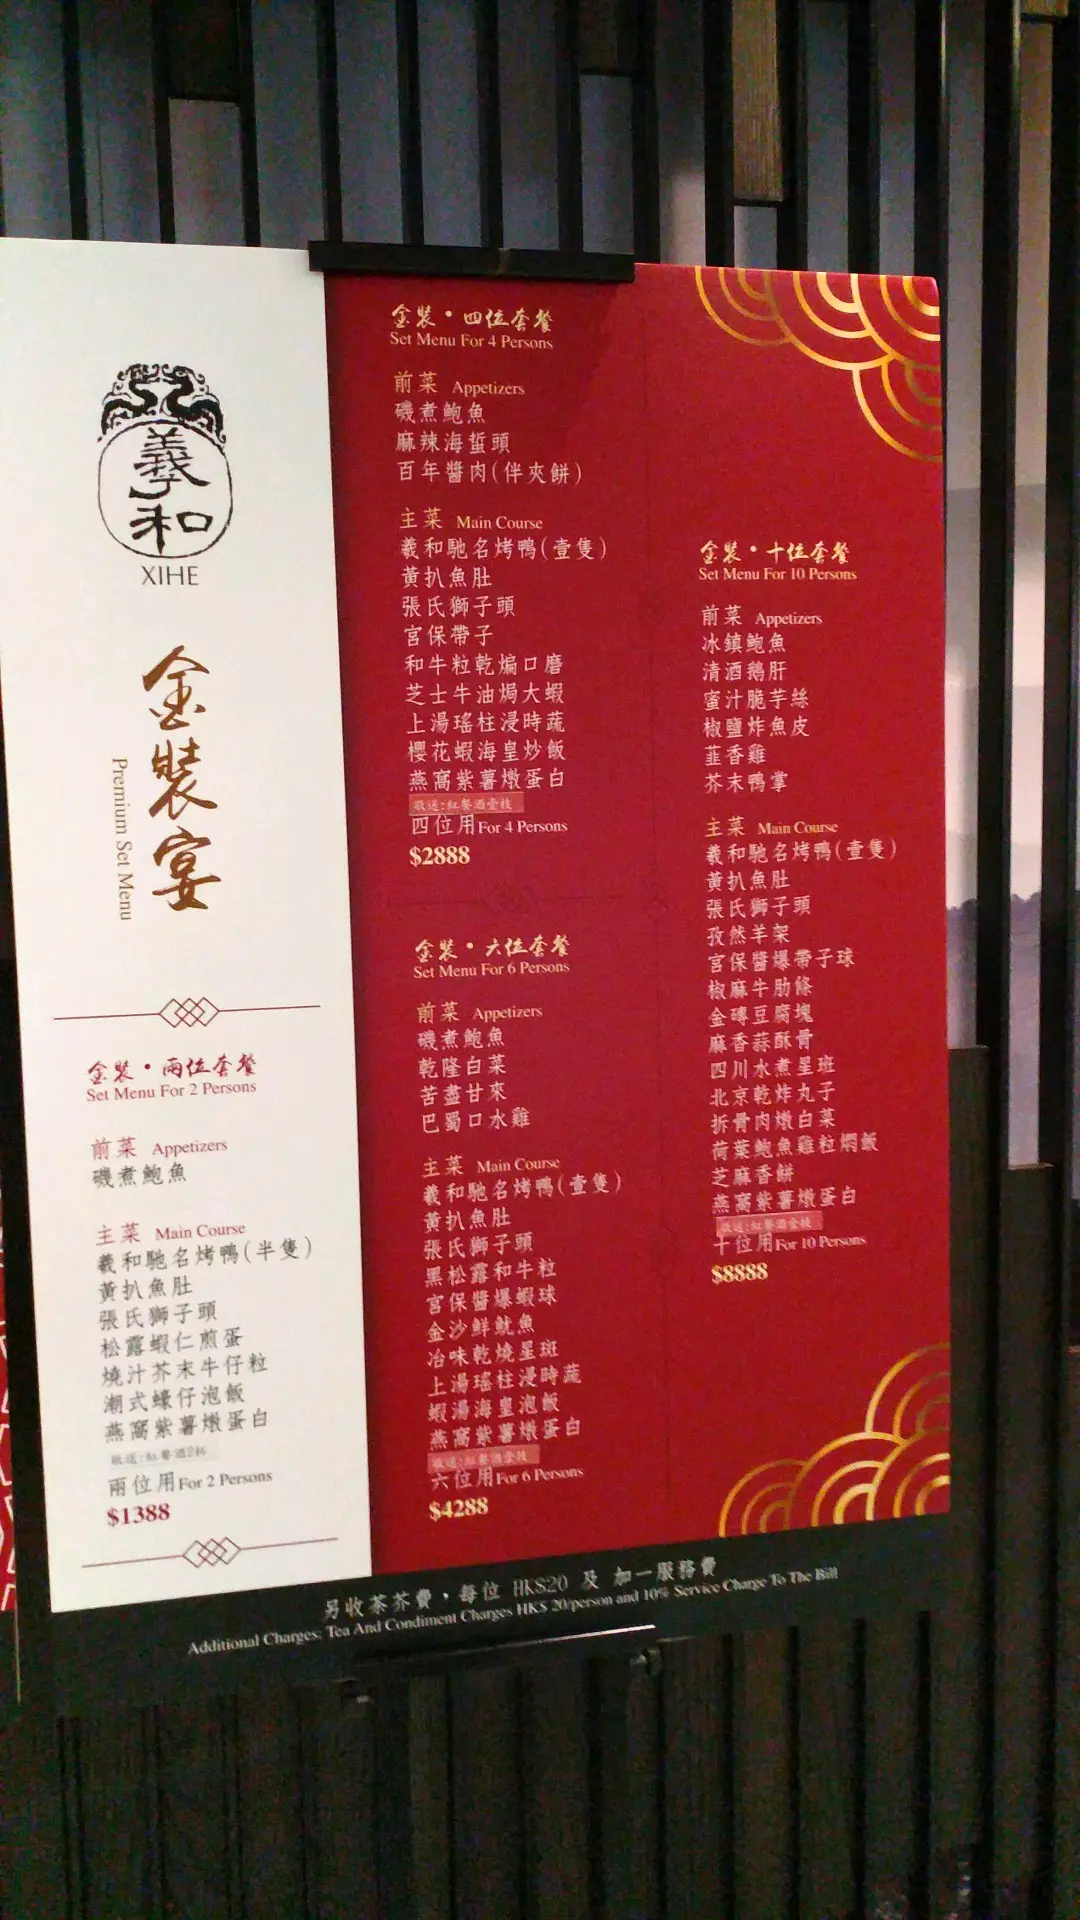 羲和
XIHE
金裝宴
Premium Set Menu
金裝・兩位套餐
Set Menu For 2 Persons
前菜 Appetizers
磯煮鮑魚
主菜 Main Course
羲和馳名烤鴨(半隻)
黃扒魚肚
張氏獅子頭
松露蝦仁煎蛋
燒汁芥末牛仔粒
潮式蠔仔泡飯
燕窩紫薯燉蛋白
敬送:紅餐酒2杯
兩位用For 2 Persons
$1388
金裝・四位套餐
Set Menu For 4 Persons
前菜 Appetizers
磯煮鮑魚
麻辣海蜇頭
百年醬肉(伴夾餅)
主菜 Main Course
羲和馳名烤鴨(壹隻)
黃扒魚肚
張氏獅子頭
宮保帶子
和牛粒乾煸口磨
芝士牛油焗大蝦
上湯瑤柱浸時蔬
櫻花蝦海皇炒飯
燕窩紫薯燉蛋白
敬送:紅餐酒壹枝
四位用For 4 Persons
$2888
金裝・六位套餐
Set Menu For 6 Persons
前菜 Appetizers
磯煮鮑魚
乾隆白菜
苦盡甘來
巴蜀口水雞
主菜 Main Course
羲和馳名烤鴨(壹隻)
黃扒魚肚
張氏獅子頭
黑松露和牛粒
宮保醬爆蝦球
金沙鮮魷魚
冶味乾燒星斑
上湯瑤柱浸時蔬
蝦湯海皇泡飯
燕窩紫薯燉蛋白
敬送:紅餐酒壹枝
六位用For 6 Persons
$4288
金裝・十位套餐
Set Menu For 10 Persons
前菜 Appetizers
冰鎮鮑魚
清酒鵝肝
蜜汁脆芋絲
椒鹽炸魚皮
韮香雞
芥末鴨掌
主菜 Main Course
羲和馳名烤鴨(壹隻)
黃扒魚肚
張氏獅子頭
孜然羊架
宮保醬爆帶子球
椒麻牛肋條
金磚豆腐塊
麻香蒜酥骨
四川水煮星班
北京乾炸丸子
拆骨肉燉白菜
荷葉鮑魚雞粒燜飯
芝麻香餅
燕窩紫薯燉蛋白
敬送:紅餐酒壹枝
十位用For 10 Persons
$8888
另收茶芥費，每位 HK$20 及 加一服務費
Additional Charges: Tea And Condiment Charges HK$ 20/person and 10% Service Charge To The Bill